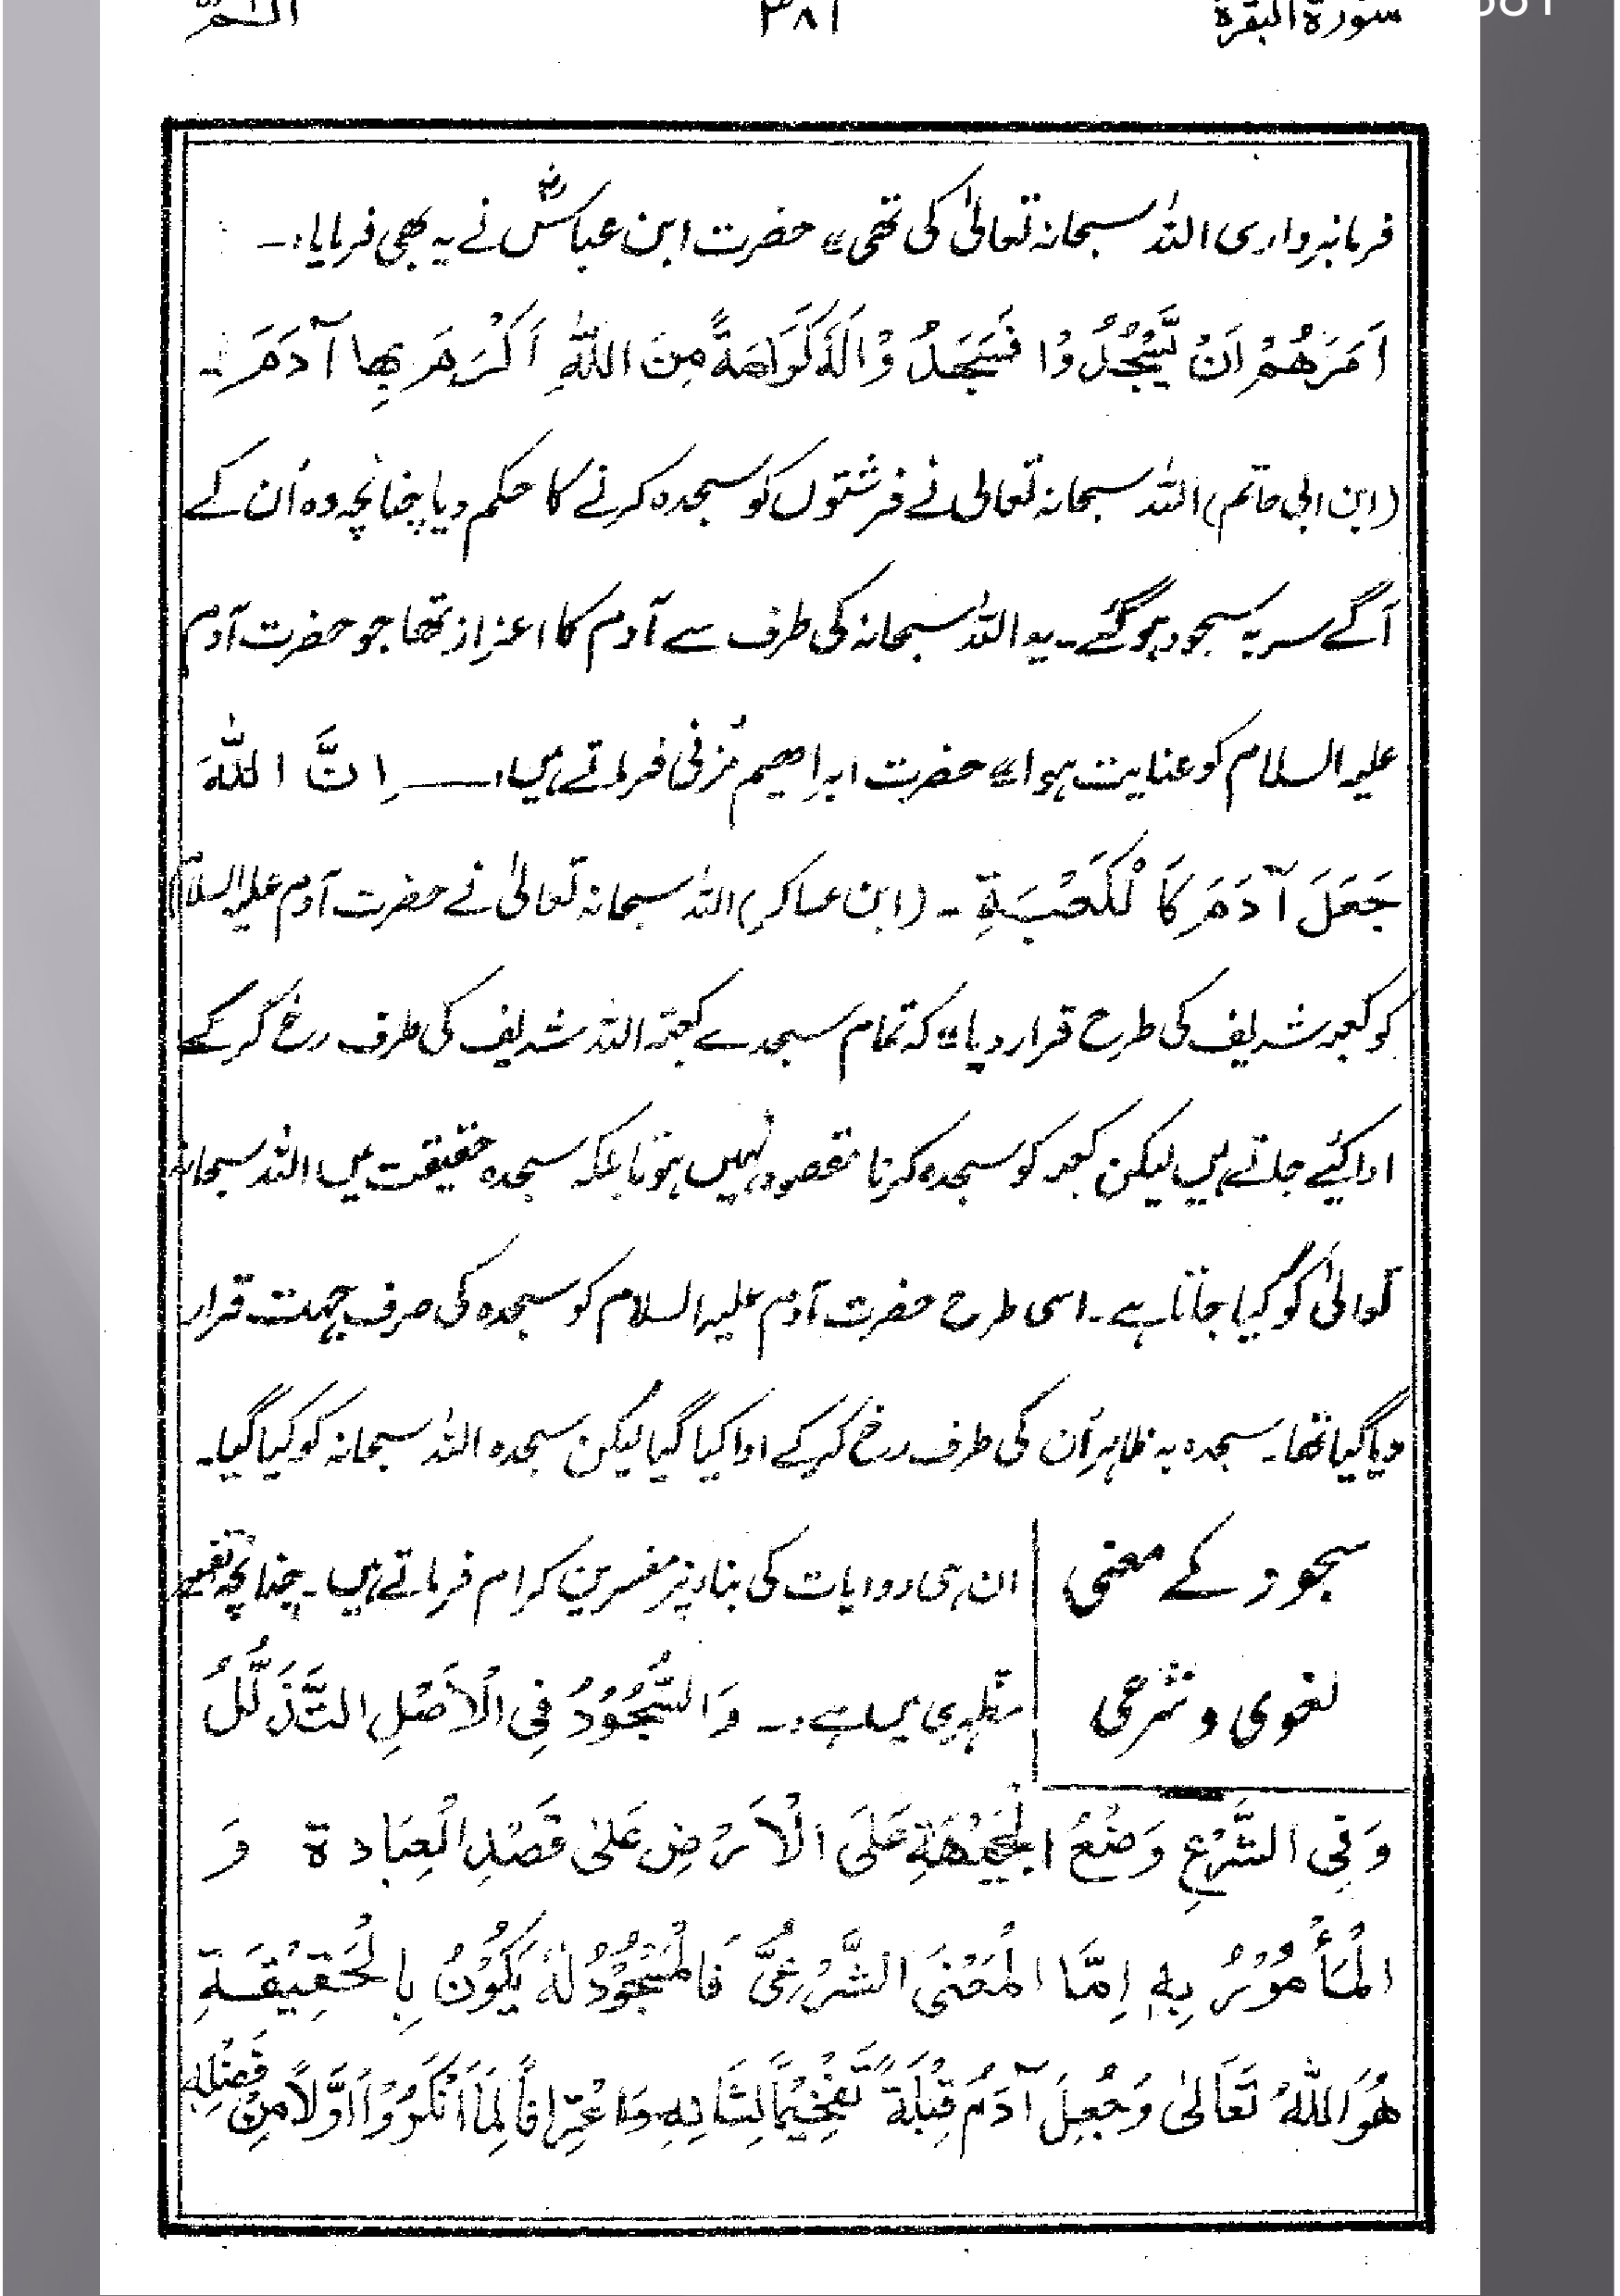 سورة البقرة ۳۸۱ الٓمّٓ
فرمانبرداری اللہ سبحانہ تعالیٰ کی تھی" حضرت ابن عباسؓ نے یہ بھی فرمایا:۔
اَمَرَهُمْ اَنْ يَّسْجُدُوْا فَسَجَدُوْا لَهٗ كَرَامَةً مِنَ اللّٰهِ اَكْرَمَ بِهَا آدَمَ۔
(ابن ابی حاتم) اللہ سبحانہ تعالی نے فرشتوں کو سجدہ کرنے کا حکم دیا چنانچہ وہ اُن کے
آگے سر بہ سجود ہو گئے۔ یہ اللہ سبحانہ کی طرف سے آدم کا اعزاز تھا جو حضرت آدم
علیہ السلام کو عنایت ہوا" حضرت ابراھیم مُزنی فرماتے ہیں:ــــ اِنَّ اللّٰهَ
جَعَلَ آدَمَ كَالْكَعْبَةِ ۔ (ابن عساکر) اللہ سبحانہ تعالیٰ نے حضرت آدم علیہ السلام
کو کعبہ شریف کی طرح قرار دیا" کہ تمام سجدے کعبتہ اللہ شریف کی طرف رخ کر کے
ادا کیئے جاتے ہیں لیکن کعبہ کو سجدہ کرنا مقصود نہیں ہوتا بلکہ سجدہ حقیقت میں اللہ سبحانہ
تعالیٰ کو کیا جاتا ہے۔ اسی طرح حضرت آدم علیہ السلام کو سجدہ کی صرف جہت قرار
دیا گیا تھا۔ سجدہ بہ ظاہر اُن کی طرف رخ کر کے ادا کیا گیا لیکن سجدہ اللہ سبحانہ کو کیا گیا۔
سجود کے معنی
لغوی و شرعی
ان ہی روایات کی بناء پر مفسرین کرام فرماتے ہیں۔ چنانچہ تفسیر
مظہری میں ہے:۔ وَالسُّجُوْدُ فِی الْاَصْلِ التَّذَلُّلُ
وَفِی الشَّرْعِ وَضْعُ الْجَبْهَةِ عَلَى الْاَرْضِ عَلىٰ قَصْدِ الْعِبَادة وَ
الْمَأْمُوْرُ بِهٖ اِمَّا الْمَعْنَى الشَّرْعِىُّ فَالْمَسْجُوْدُ لَهٗ يَكُوْنُ بِالْحَقِيْقَةِ
هُوَ اللّٰهُ تَعَالىٰ وَجُعِلَ آدَمُ قِبْلَةً تَفْخِيْمًا لِشَانِهٖ وَاعْتِرَافًا لِمَا اَنْكَرُوْا اَوَّلًا مِنْ فَضْلِهٖ